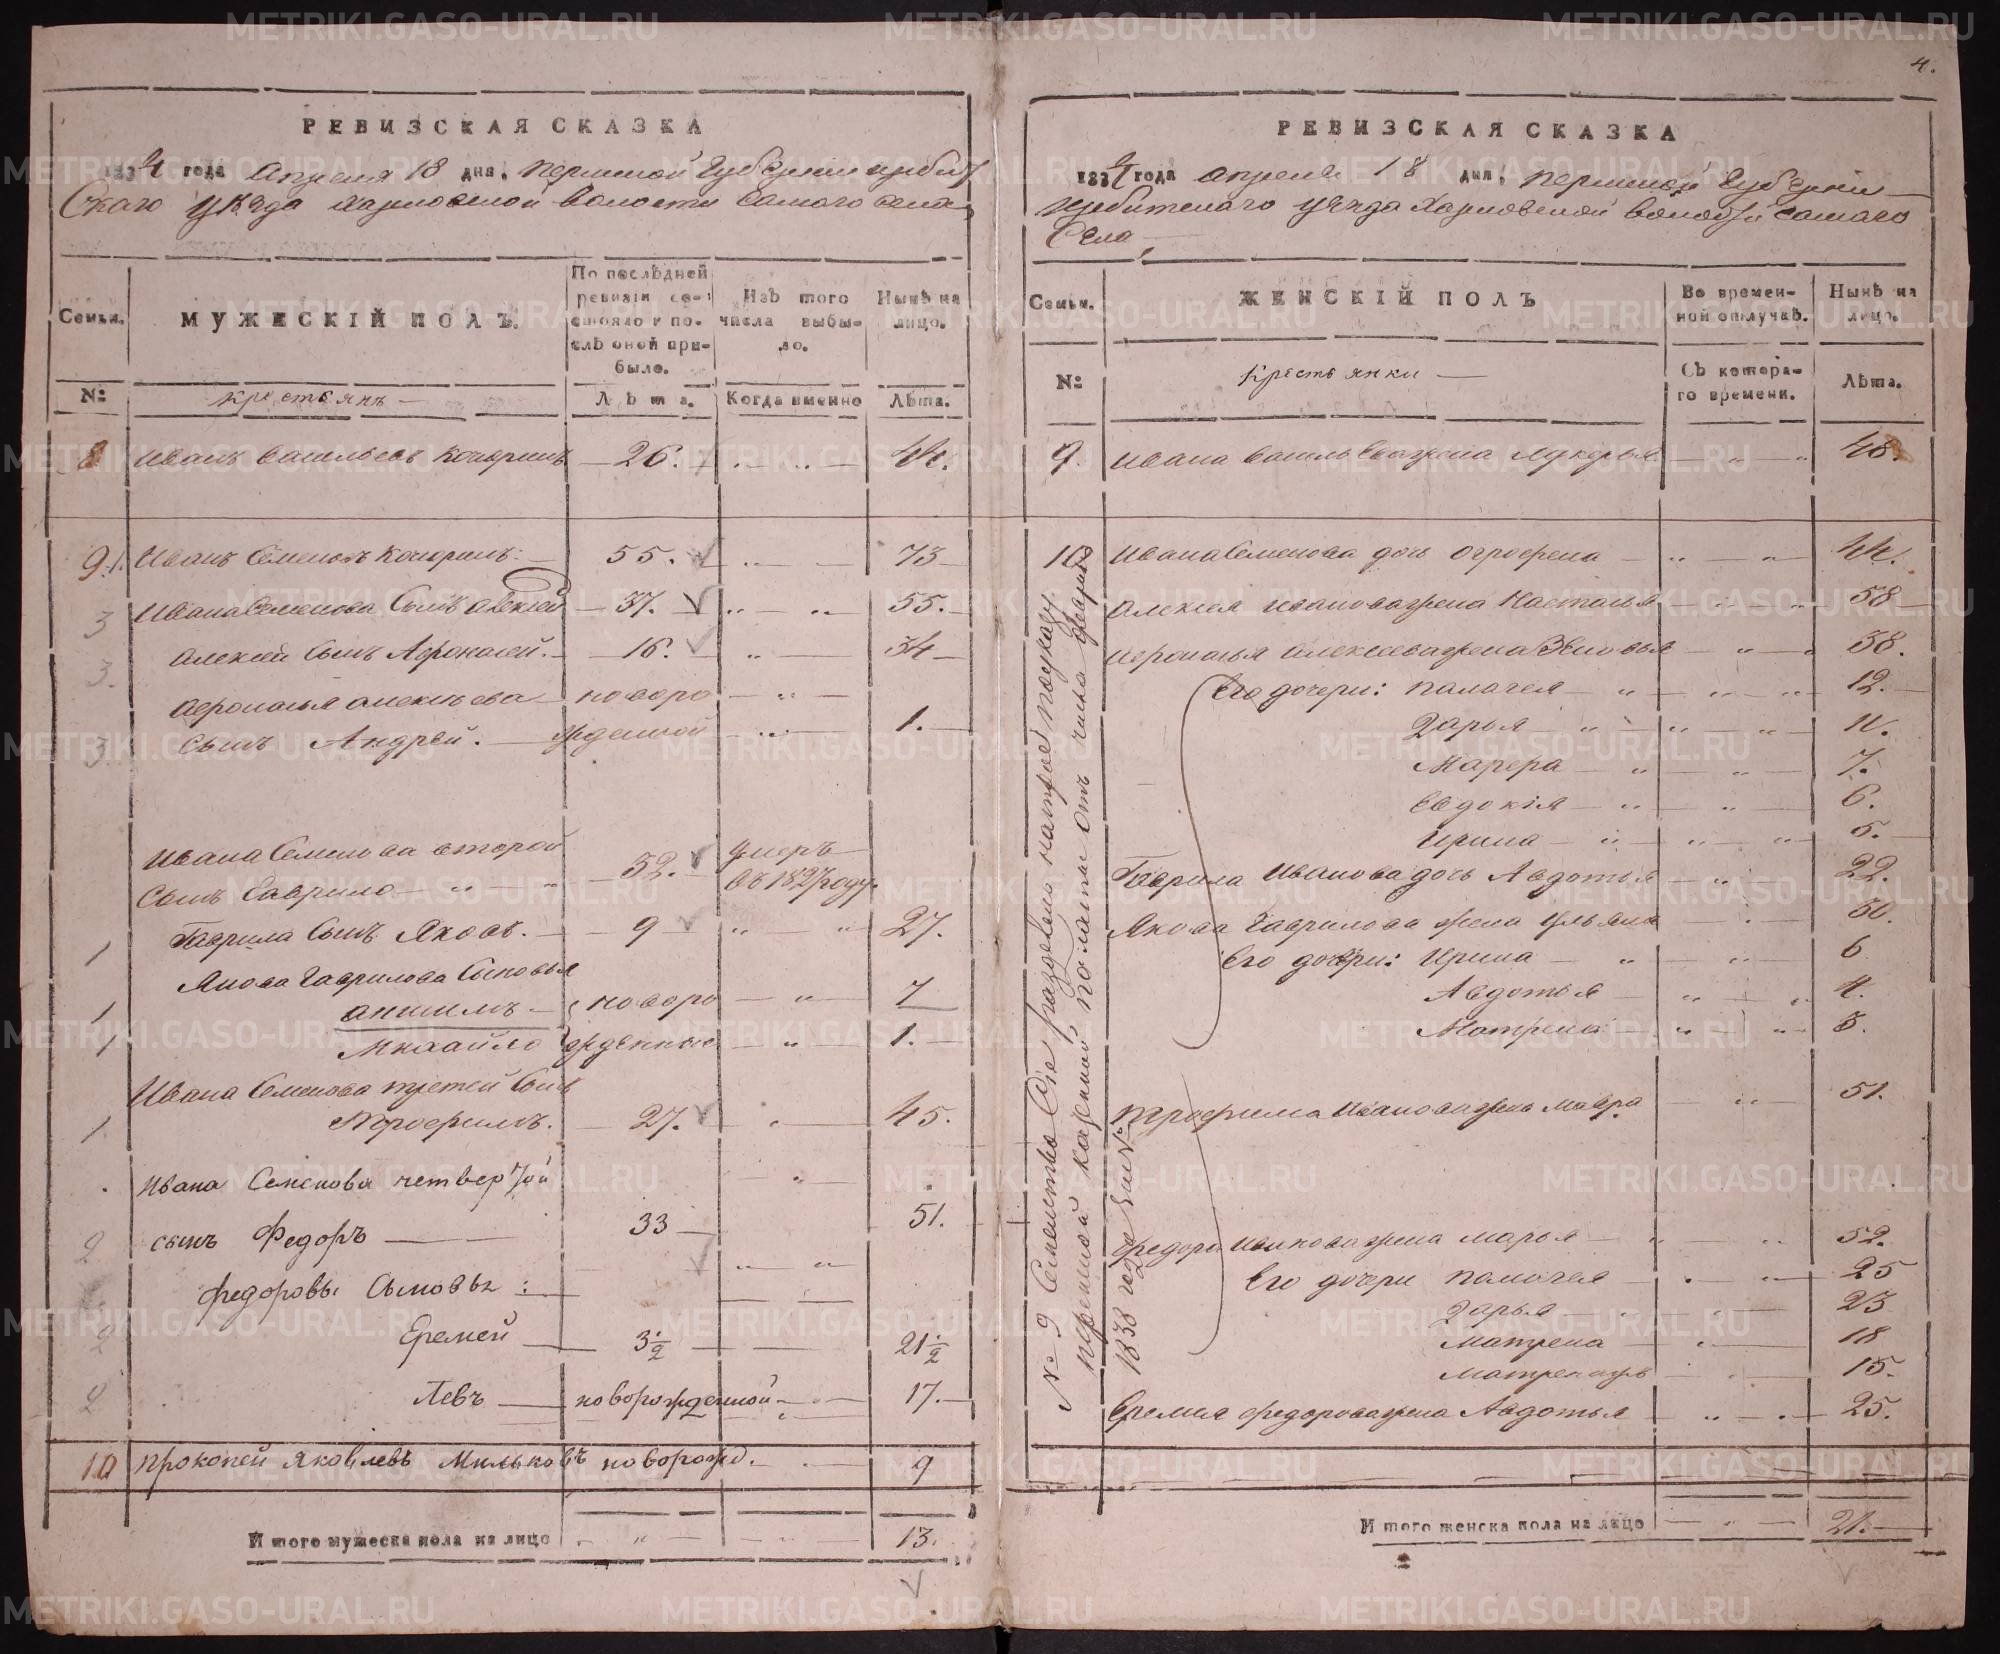 4.
РЕВИЗСКАЯ СКАЗКА
1834 года апреля 18 дня, пермской губернии ирбит
скаго уѣзда харловской волости самого села
Семьи.
МУЖЕСКІЙ ПОЛЪ.
По послѣдней ревизіи со-
стояло и по-
слѣ оной при-
было.
Изъ того
числа выбы-
ло.
Нынѣ на
лицо.
№
крестьянъ
Лѣта.
Когда именно
Лѣта.
8 иванъ васильевъ кочюринъ 26. 44.
9.1. Иванъ Семеновъ кочюринъ: 55. 73
3 ивана Семенова Сынъ алексей 37. 55.
3. алексей Сынъ Афонасей. 16. 34
афонасья алексѣева новоро
3. сынъ Андрей. жденной 1.
ивана Семенова второй умеръ
Сынъ Гаврило 52. въ 1827 году.
1 Гаврила Сынъ Яковъ. 9 27.
Якова Гаврилова Сыновья
1 анисимъ новоро 7
1 Михаайло жденные 1.
ивана Семенова третей Сынъ
1 Трофимъ. 27. 45.
ивана Семенова четвертой
2 сынъ Федоръ 33 51.
федоровы Сыновья:
2 Еремей 3 1/2 21 1/2
2 Левъ новорожденной 17.
10 прокопей яковлевъ Мильковъ новорожд. 9
Итого мужеска пола на лицо 13.
РЕВИЗСКАЯ СКАЗКА
1834 года апреля 18 дня, пермской губерніи
ирбитскаго уѣзда Харловской волости самаго
Села
Семьи.
ЖЕНСКІЙ ПОЛЪ
Во времен-
ной отлучкѣ.
Нынѣ на
лицо.
№
крестьянки
Съ котора-
го времени.
Лѣта.
9. ивана васильева жена лукерья 48.
10 ивана Семенова дочь огрофена 44.
алексея иванова жена Настасья 58
афонасья алексеева жена Зѣновья 38.
Его дочери: палагея 12.
Дарья 11.
Марфа 7.
Евдокія 6.
ирина 5.
Гаврила иванова дочь Авдотья 22.
Якова Гаврилова жена ульяна 30.
Его дочери: ирина 6
Авдотья 4.
Матрена 3.
трофима иванова жена Мавра 51.
федора иванова жена марья 52.
Его дочери палагея 25
Дарья 23
матрена 18
матрена жъ 15.
Еремея федорова жена Авдотья 25.
Итого женска пола на лицо 21.
№ 9 Семейство Сіе раздѣлено на трое по указу
пермской казенной полаты отъ числа февраля
1838 года за №
METRIKI.GASO-URAL.RU